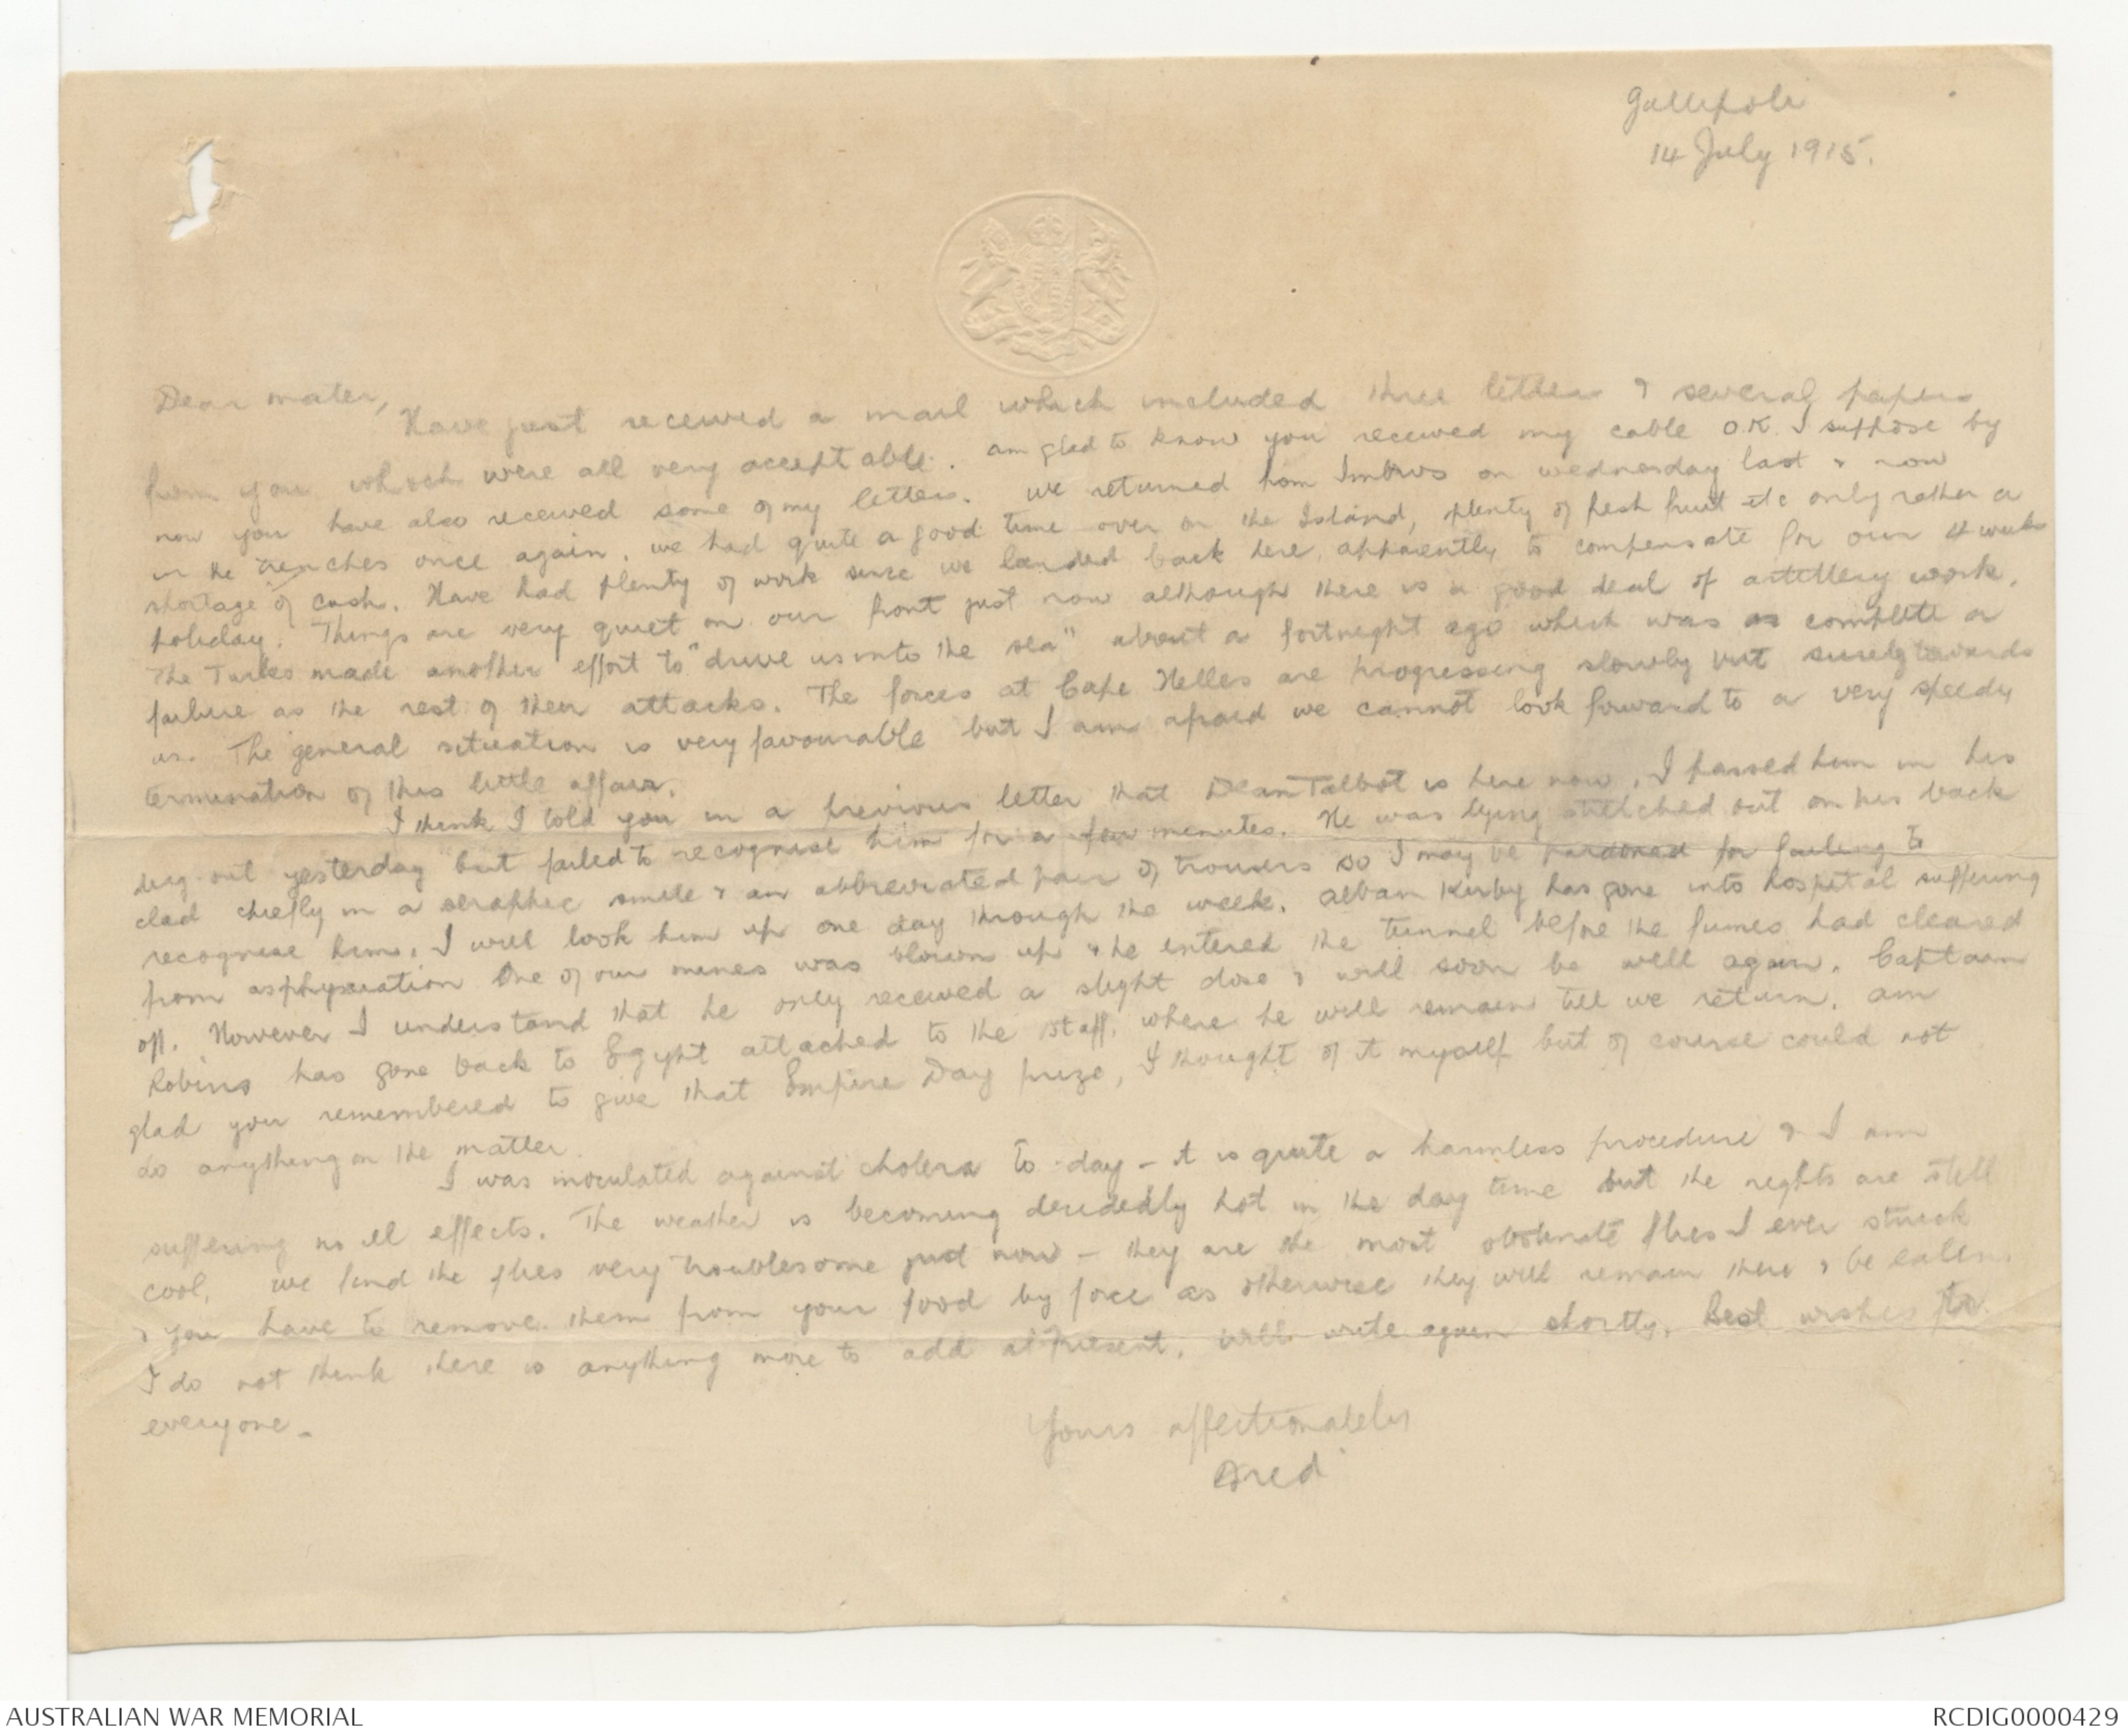 Gallipoli
14 July 1915.
Dear mater,
Have just received a mail which included three letters & several papers
from you which were all very acceptable. am glad to know you received my cable O.K. I suppose by
now you have also received some of my letters. we returned from Imbros on wednesday last & now
in the trenches once again. we had quite a good time over on the Island, plenty of fresh fruit etc only rather a
shortage of cash. Have had plenty of work since we landed back here, apparently to compensate for our 4 weeks
holiday. Things are very quiet on our front just now although there is a good deal of artillery work.
The Turks made another effort to "drive us into the sea" about a fortnight ago which was as complete a
failure as the rest of their attacks. The forces at Cape Helles are progressing slowly but surely towards
us. The general situation is very favourable but I am afraid we cannot look forward to a very speedy
termination of this little affair.
I think I told you in a previous letter that Dean Talbot is here now. I passed him in his
dug-out yesterday but failed to recognise him for a few minutes. He was lying stretched out on his back
clad chiefly in a seraphic smile & an abbreviated pair of trousers so I may be pardoned for failing to
recognise him. I will look him up one day through the week. Alban Kirby has gone into hospital suffering
from asphyxiation One of our mines was blown up & he entered the tunnel before the fumes had cleared
off. However I understand that he only received a slight dose & will soon be well again. Captain
Robins has gone back to Egypt attached to the staff. where he will remain till we return. am
glad you remembered to give that Empire Day prize, I thought of it myself but of course could not
do anything in the matter.
I was inoculated against cholera to-day - it is quite a harmless procedure & I am
suffering no ill effects. The weather is becoming decidedly hot in the day time but the nights are still
cool. we find the flies very troublesome just now - they are the most obstinate flies I ever struck
& you have to remove them from your food by force as otherwise they will remain there & be eaten.
I do not think there is anything more to add at present. will write again shortly. Best wishes to
everyone.
Yours affectionately
Fred
AUSTRALIAN WAR MEMORIAL
RCDIG0000429